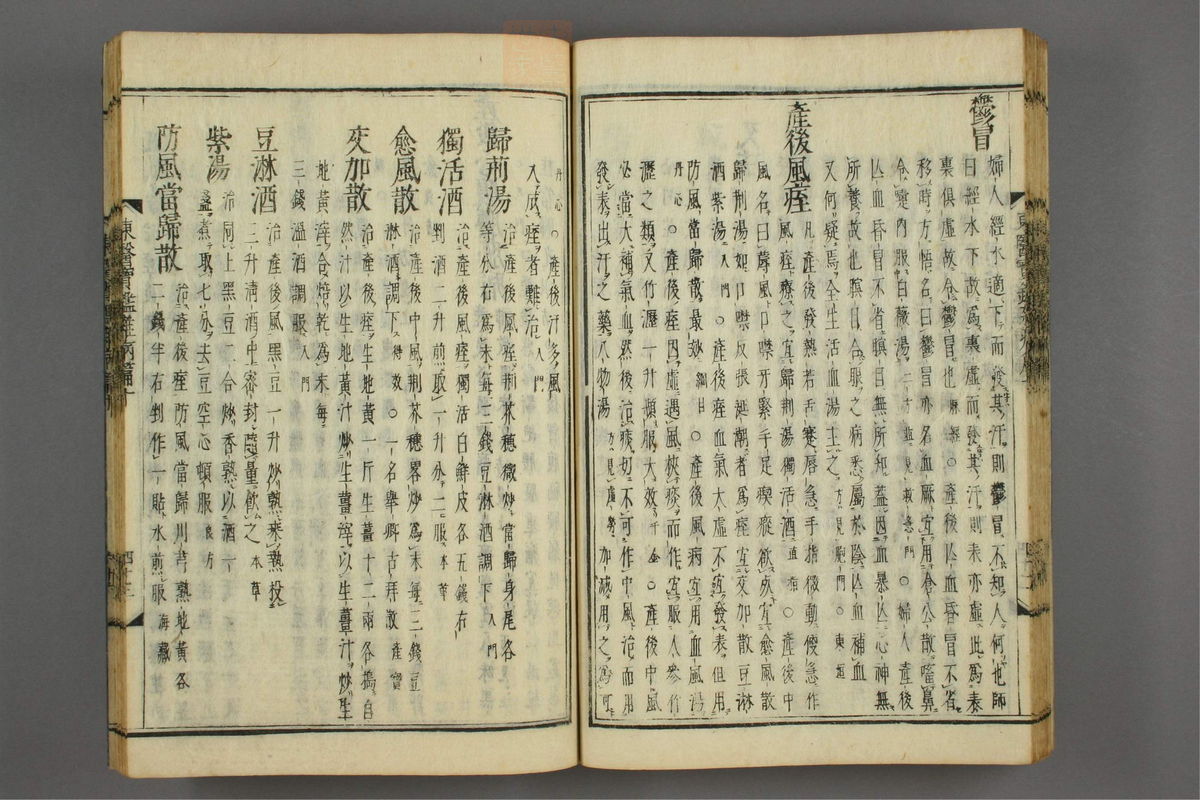 鬱冒
婦人經水適下而發其汗則鬱冒不知人何也師
曰經水下故爲裏虛而發其汗則表亦虛此爲表
裏俱虛故令鬱冒也 ○產後亾血昏冒不省
移時方悟名曰鬱冒亦名血厥宜用倉公散㗜鼻
令 內服白薇湯 ○婦人產後
亾血昏冒不省者瞑目無所知蓋因血暴亾心神無
所養故也 目合 之病悉屬於陰亾血補血
又何疑焉全生活血湯主之 東垣
產後風痓
凡產後發熱若舌蹇唇急手指微動便急作
風痓療之宜歸荊湯獨活酒 直指 ○產後中
風名曰 風口噤牙緊手足瘈瘲欲 宜愈風散
歸荊湯如口噤反張涎潮者爲痓宜交加散豆淋
酒紫湯 入門 ○產後血氣大虛不宜發表但用
防風當歸散最妙 綱目 ○產後風病宜用血風湯
丹心 ○產後痓因虛遇風挾痰而作宜服人參竹
瀝之類又竹瀝一升頓服大效 千金 ○產後中風
必當大補氣血然後治痰切不可作中風治而用
發表出汗之藥八物湯 方見虛勞 加減用之爲可
丹心 ○產後汗多風
入成痓者難治 入門
歸荊湯
治產後風痓荊芥穗微炒當歸身尾各
等分右爲末每三錢豆淋酒調下 入門
獨活酒
治產後風痓獨活白鮮皮各五錢右
剉酒二升煎取一升分二服 本草
愈風散
治產後中風荊芥穗略炒爲末每三錢豆
淋酒調下 得效 ○一名擧卿古拜散 產寶
交加散
治產後痓生地黃一斤生薑十二兩各搗自
然汁以生地黃汁炒生薑滓以生薑汁炒生
地黃滓合焙乾爲末每
三錢溫酒調服 入門
豆淋酒
治產後風黑豆一升炒熟乘熱投
三升淸酒中密封隨量飮之 本草
紫湯
治同上黑豆二合炒香熟以酒一
盞煮取七分去豆空心頓服 良方
防風當歸散
治產後痓防風當歸川芎熟地黃各
二錢半右剉作一貼水煎服 海藏
東醫寶鑑雜病篇十
四十三